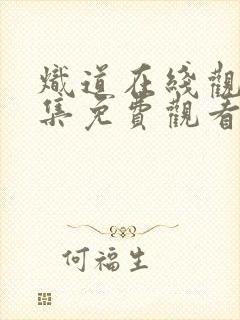 熾道在綫觀
集免費觀看
何福生